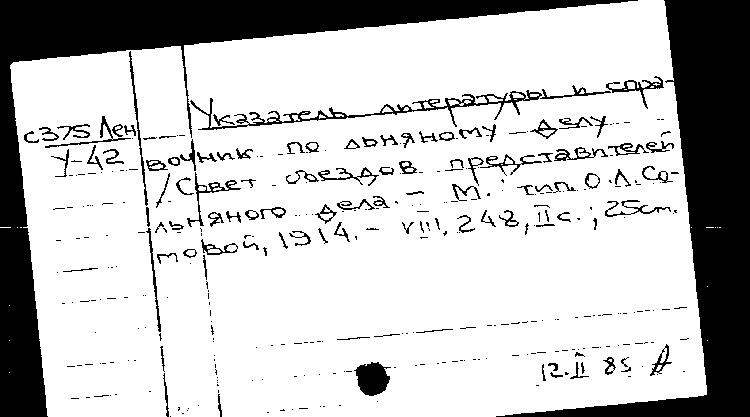 Указатель литературы и спра-
с375 Лен
У-42
вочник по льняному делу
/ Совет съездов представителей
льняного дела. – М.: тип. О.Л. Со-
мовой, 1914. – VIII, 248, II с.; 25 cm.
12.II 85